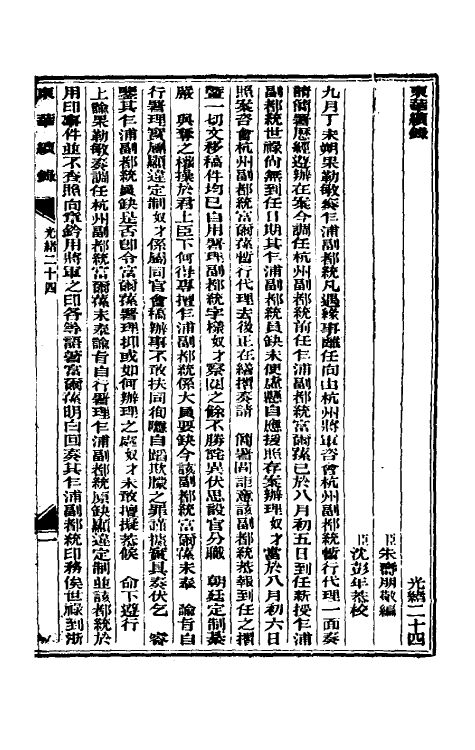 東華續錄
光緒二十四
臣朱壽朋敬編
臣沈彭年恭校
九月丁未朔果勒敏奏乍浦副都統凡遇緣事離任向由杭州將軍咨會杭州副都統暫行代理一面奏
請簡署歷經遵辦在案今調任杭州副都統前任乍浦副都統富爾蓀已於八月初五日到任新授乍浦
副都統世祿尚無到任日期其乍浦副都統員缺未便虛懸自應援照存案辦理奴才當於八月初六日
照案咨會杭州副都統富爾蓀暫行代理去後正在繕摺奏請 簡署間詎意該副都統恭報到任之摺
暨一切文移稿件均已自用署理副都統字樣奴才察閱之餘不勝詫異伏思設官分職 朝廷定制綦
嚴 與奪之權操於君上臣下何得專擅乍浦副都統係大員要缺今該副都統富爾蓀未奉 諭旨自
行署理實屬顯違定制奴才係屬同官會稿辦事不敢扶同徇隱自蹈欺朦之罪謹據實具奏伏乞 睿
鑒其乍浦副都統員缺是否卽令富爾蓀署理抑或如何辦理之處奴才未敢擅擬恭候 命下遵行
上諭果勒敏奏調任杭州副都統富爾蓀未奉諭旨自行署理乍浦副都統原缺顯違定制並該都統於
用印事件並不查照向章鈐用將軍之印各等語著富爾蓀明白回奏其乍浦副都統印務俟世祿到浙
東華續錄
光緒二十四
一